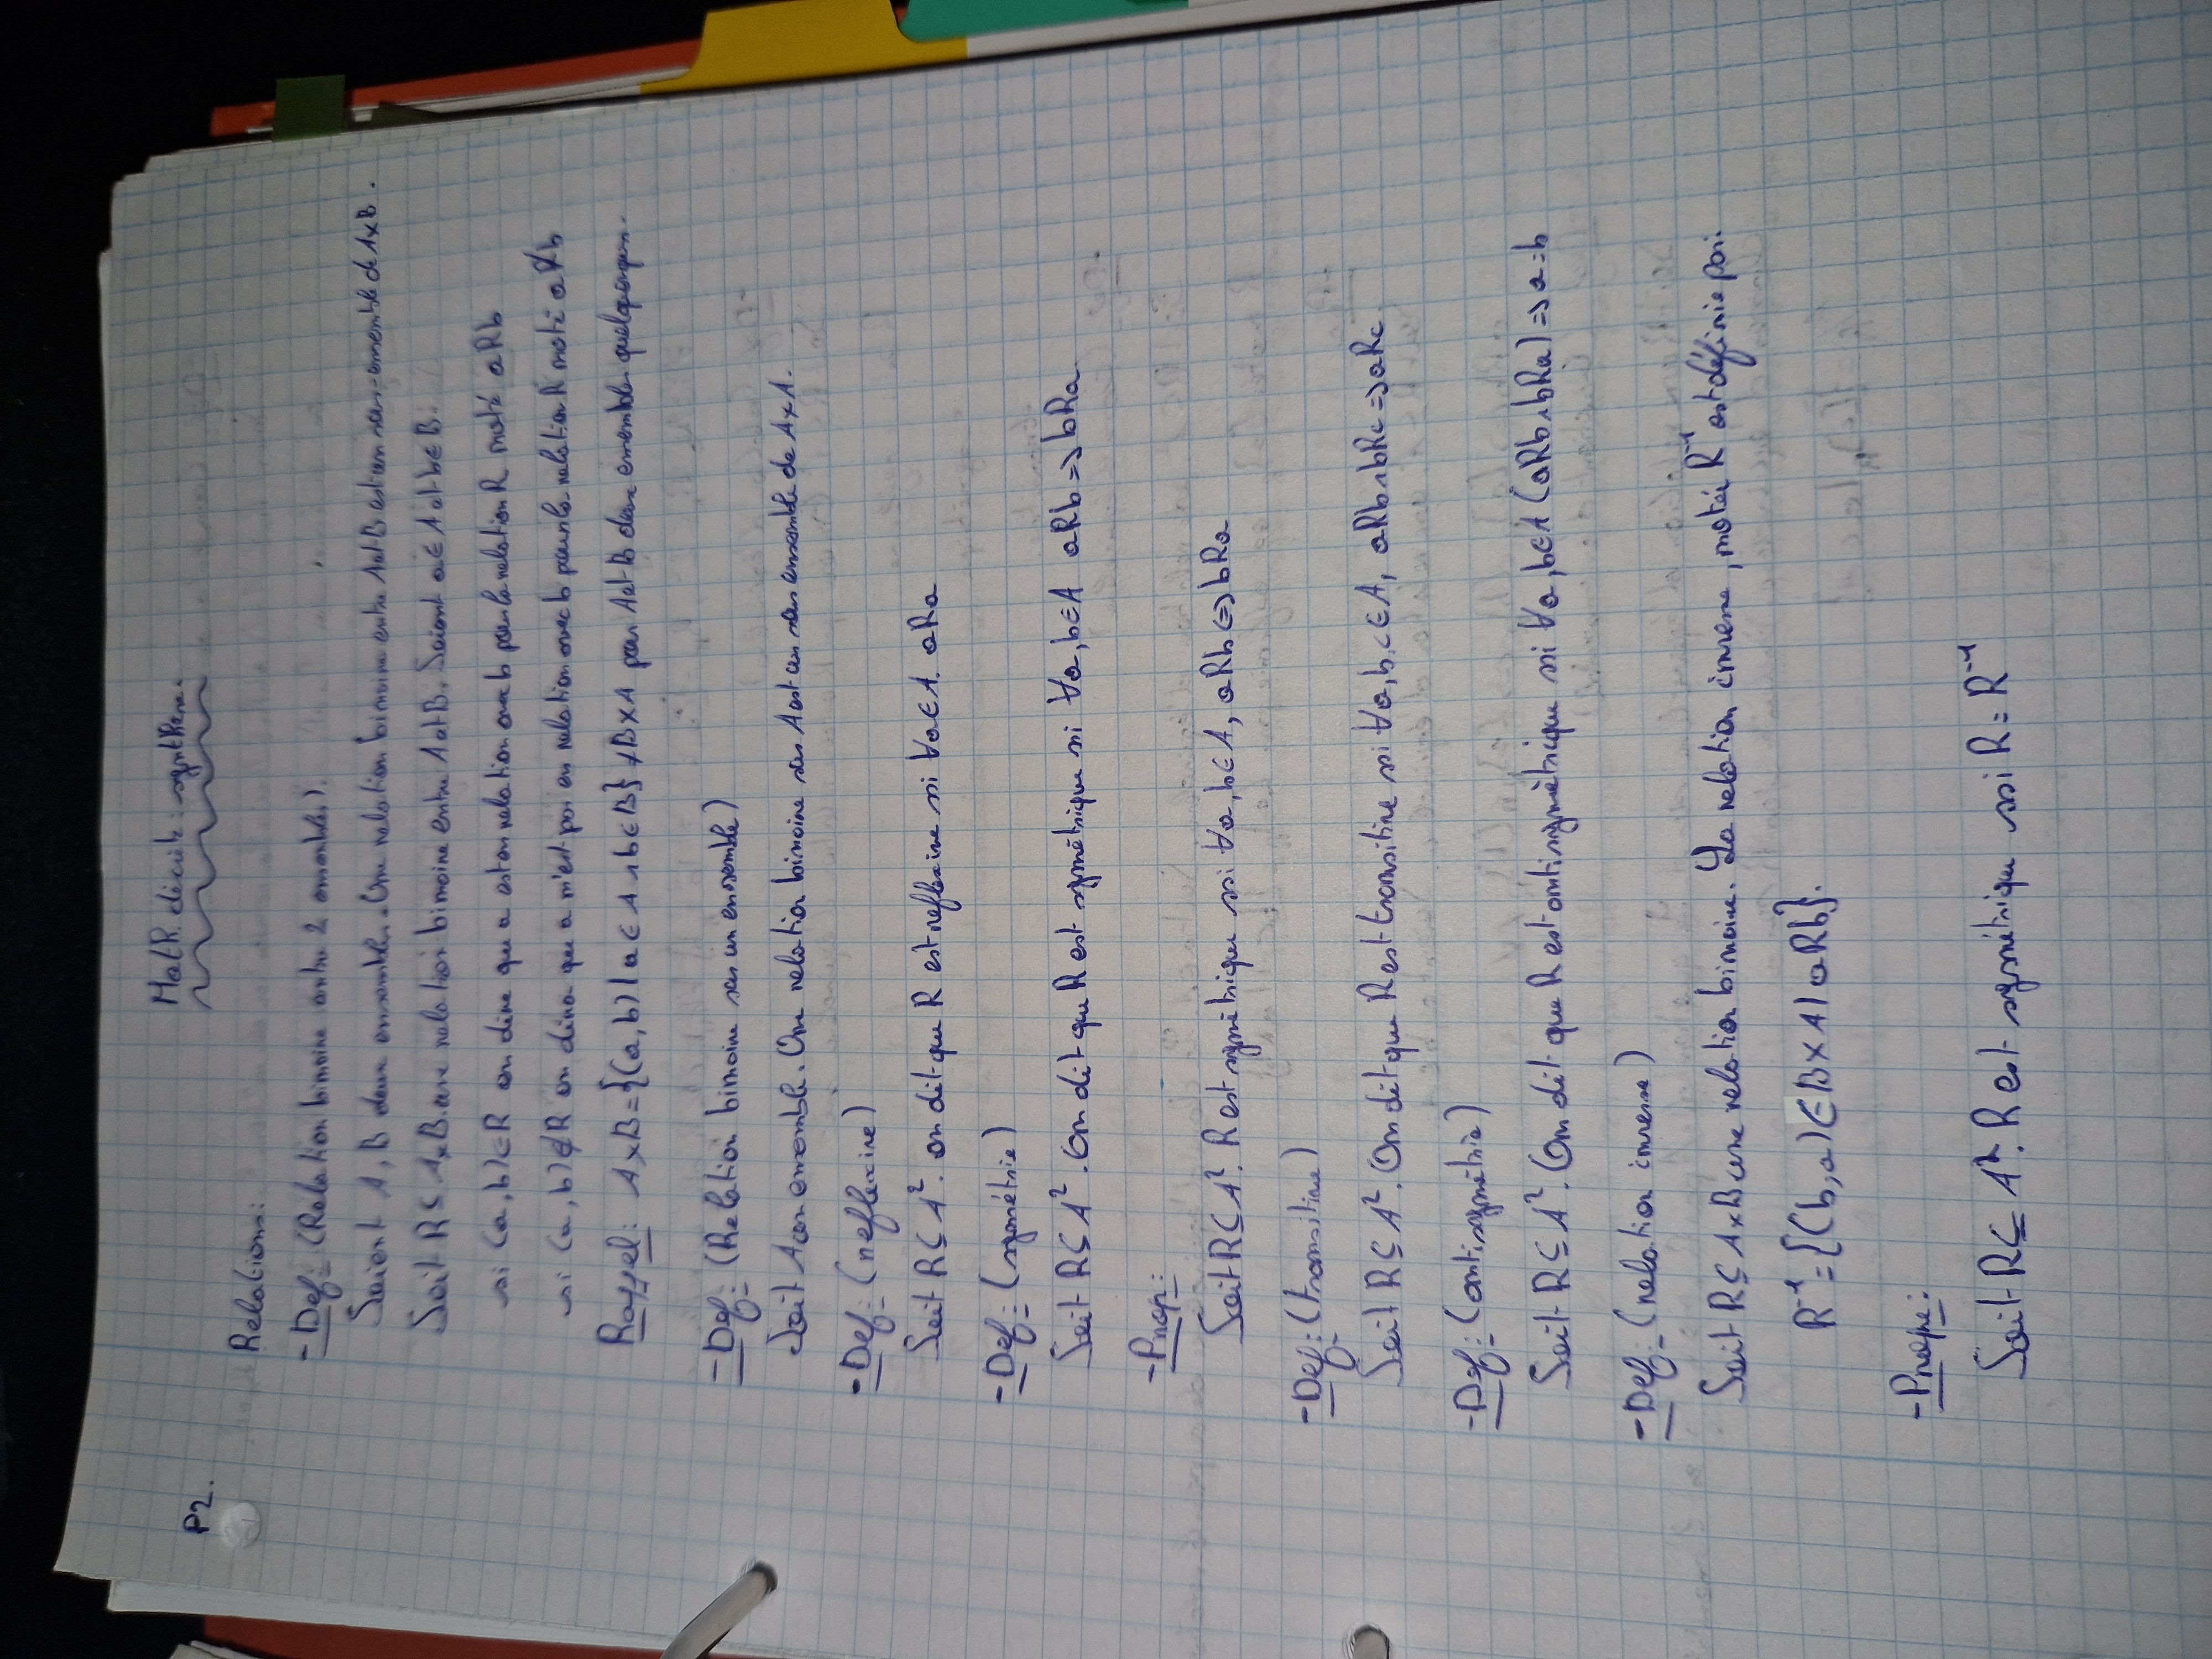 Math. discrète: synthèse.
P2.
Relations:
- Def: (Relation binaire entre 2 ensembles).
Soient A, B deux ensembles. Une relation binaire entre A et B est un sous-ensemble de A×B.
Soit R ⊆ A×B une relation binaire entre A et B. Soient a ∈ A et b ∈ B.
si (a,b) ∈ R on dira que a est en relation avec b pour la relation R noté aRb
si (a,b) ∉ R on dira que a n'est pas en relation avec b pour la relation R noté aR̸b
Rappel: A×B = {(a,b) | a ∈ A ∧ b ∈ B} ≠ B×A pour A et B deux ensembles quelconques.
- Def: (Relation binaire sur un ensemble)
Soit A un ensemble. Une relation binaire sur A est un sous ensemble de A×A.
- Def: (reflexive)
Soit R ⊆ A². on dit que R est reflexive si ∀a ∈ A. aRa
- Def: (symétrie)
Soit R ⊆ A². On dit que R est symétrique si ∀a, b ∈ A aRb => bRa
- Prop:
Soit R ⊆ A². R est symétrique ssi ∀a, b ∈ A, aRb <=> bRa
- Def: (transitive)
Soit R ⊆ A². On dit que R est transitive si ∀a, b, c ∈ A, aRb ∧ bRc => aRc
- Def: (antisymétrie)
Soit R ⊆ A². On dit que R est antisymétrique si ∀a, b ∈ A (aRb ∧ bRa) => a = b
- Def: (relation inverse)
Soit R ⊆ A×B une relation binaire. La relation inverse, notée R⁻¹ est définie par:
R⁻¹ = {(b,a) ∈ B×A | aRb}.
- Prope:
Soit R ⊆ A². R est symétrique ssi R = R⁻¹